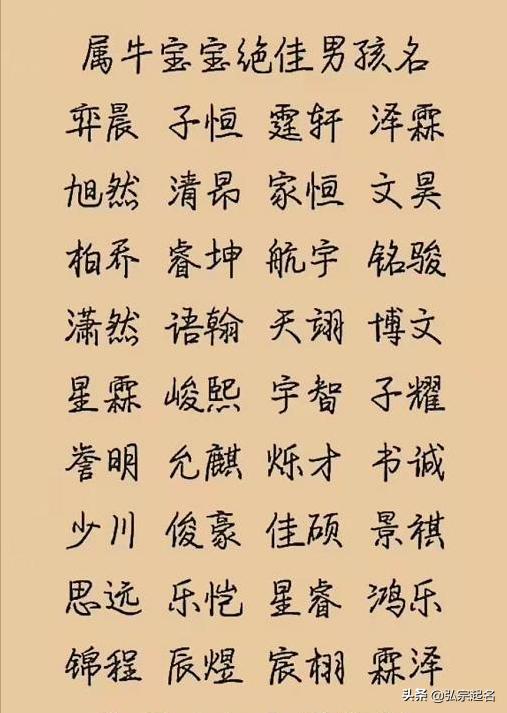 属牛宝宝绝佳男孩名
弈晨 子恒 霆轩 泽霖
旭然 清昂 家恒 文昊
柏乔 睿坤 航宇 铭骏
潇然 语翰 天翊 博文
星霖 峻熙 宇智 子耀
誉明 允麒 烁才 书诚
少川 俊豪 佳硕 景祺
思远 乐恺 星睿 鸿乐
锦程 辰煜 宸栩 霖泽
头条 @弘宗起名